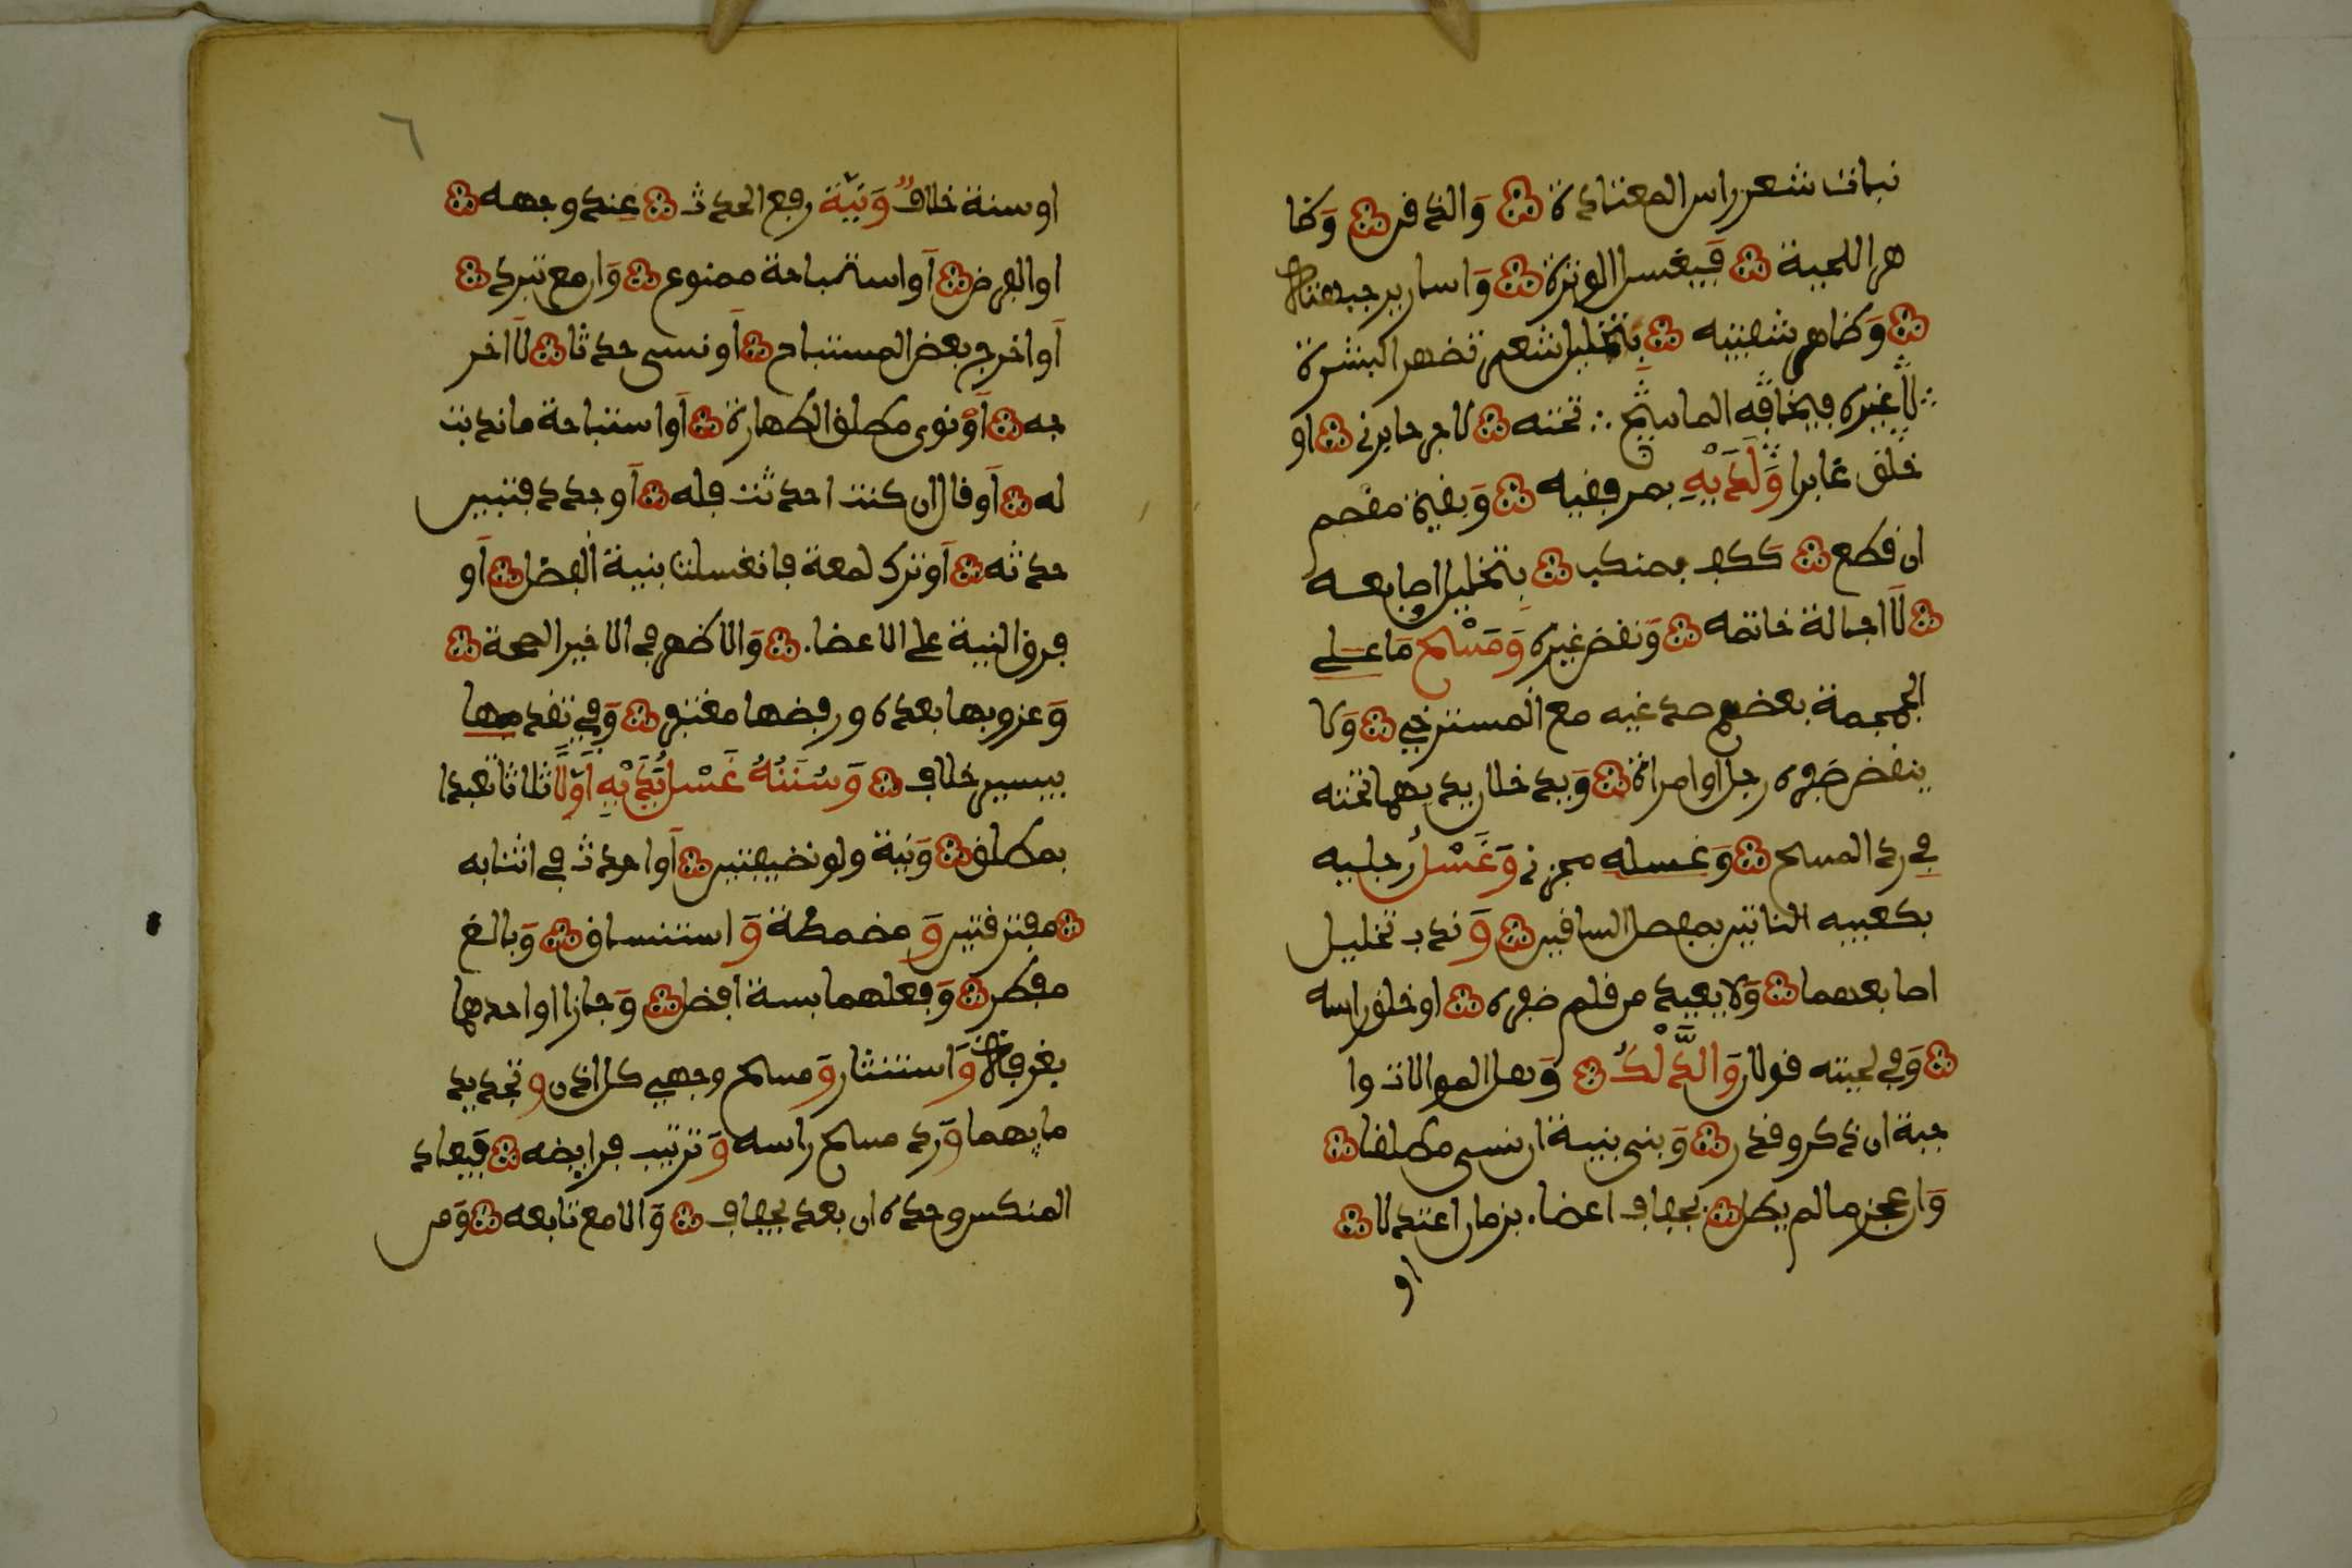 نبات شعر راس المعتادة وَالذفن وَظا
هر اللحية فَيغسل الوترة وَاسارير جبهته
وَظاهر شفتيه بِتخليل شعر تظهر البشرة
لَاغيره فيخافه الماسح تحته لا جرحا برئ او
خلق غايرا وَلَدَيْهِ بمرفقيه وَبقية معصم
ان قطع ككف بمنكب بِتخليل اصابعه
لَا اجالة خاتمه وَنقض غيره وَمَسْح مَا على
الجمجمة بعضم صدغيه مع المسترخي وَلا
ينقض ضفره رجل او امراة وَيدخلان يديهما تحته
في رد المسح وَغسله مجز وَغَسْلُ رجليه
بكعبيه الناتيين بمفصل السافين وَندب تخليل
اصابعهما وَلا يعيد من قلم ضفره او خلق راسه
وَفي لحيته قولان وَالدَّلْكُ وَهل الموالات وا
جبة ان ذكر وقدر وَبنى بنية ان نسي مطلقا
وَان عجز ما لم يطل بجفاف اعضاء بزمان اعتدلا
او
٦
او سنة خلافٌ وَنيّة رفع الحدث عند وجهه
او الفرض اَو استباحة ممنوع وَان مع تبرد
اَو اخرج بعض المستباح اَو نسي حدثا لَا اخر
جه اَو نوى مطلق الطهارة اَو استباحة ما ندبت
له اَو قال ان كنت احدثت فله اَو جدد فتبين
حدثه اَو ترك لمعة فانغسلت بنية الفضل اَو
فرق النية على الاعضاء وَالاظهر في الاخير الصحة
وَعزوبها بعده ورفضها مغتفر وَفي تقدمها
بيسير خلاف وَسُنَنُهُ غَسْل يَدَيْهِ اَوّلًا ثلاثا تعبدا
بمطلق وَنية ولو نضيفتين اَو احدث في اثنايه
مفترفتين وَمضمضة وَاستنساق وَبالغ
مفطر وَفعلهما بستة افضل وَجازا او احدهما
بغرفة وَاستنثار وَمسح وجهي كل اذن وتجديد
مايهما وَرد مسح راسه وَترتيب فرايضه فَيعاد
المنكس وحده ان بعد بجفاف وَالا مع تابعه وَمن